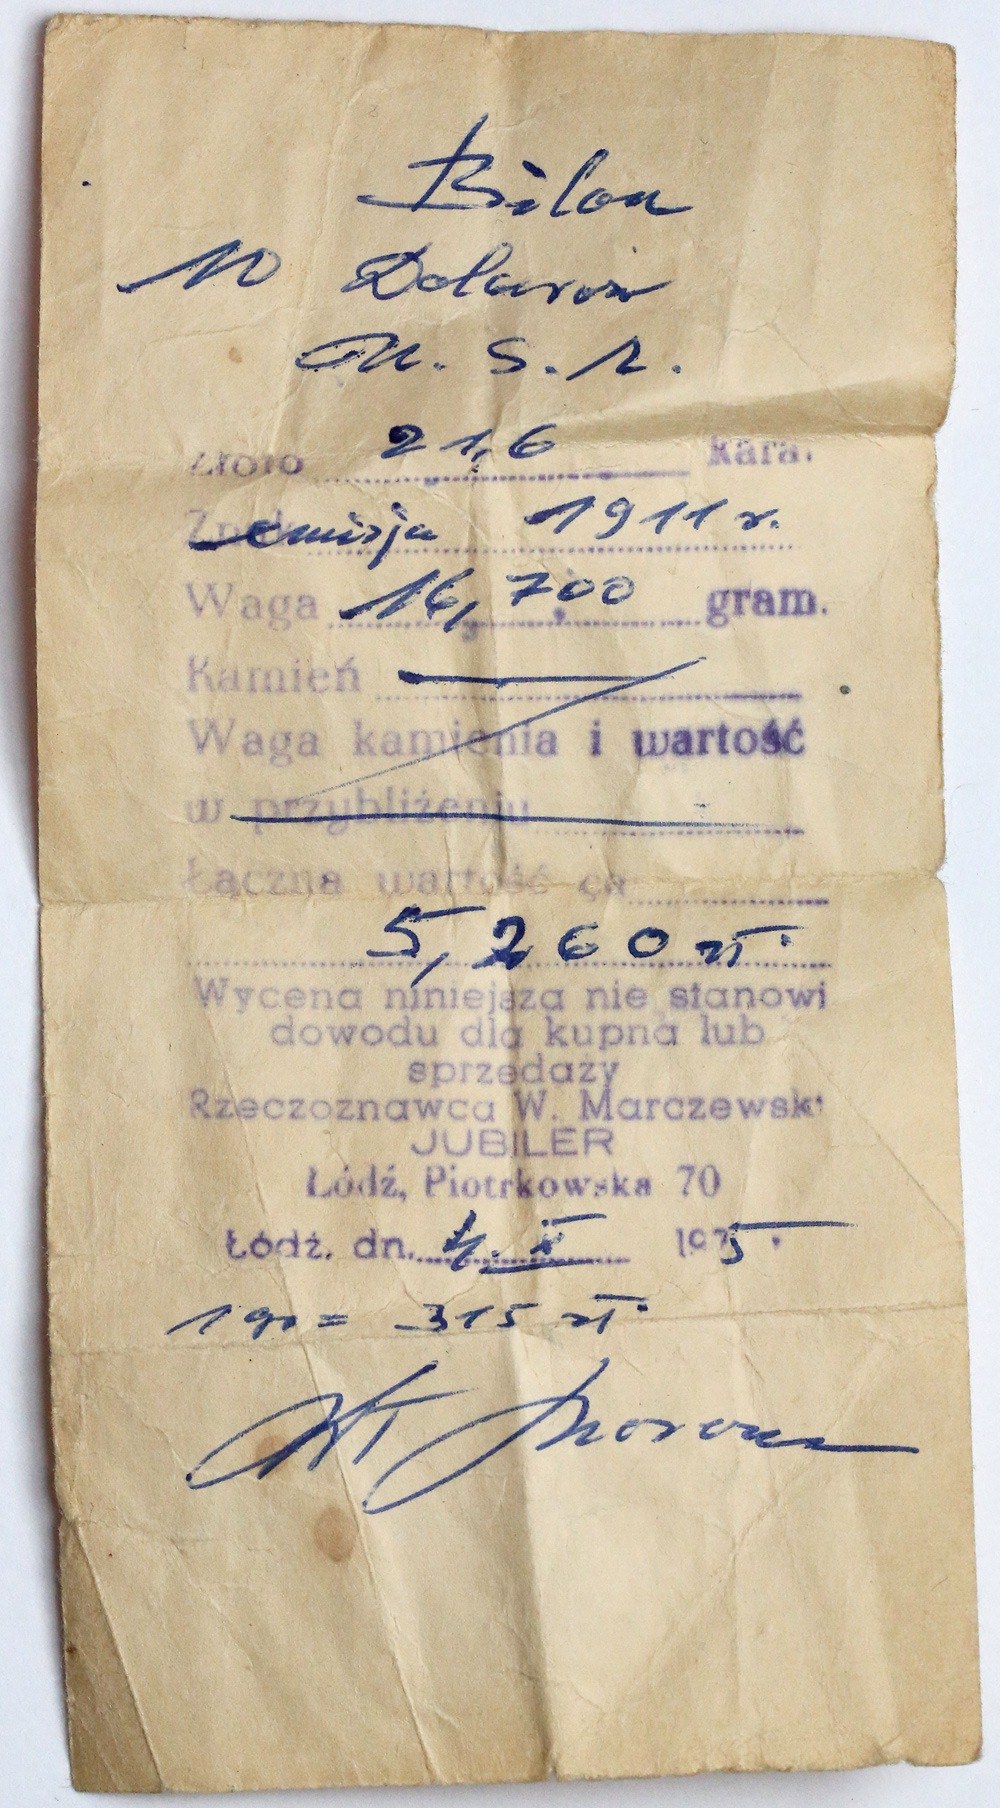 Bilon
10 Dolarów
U. S. A.
Złoto 21,6 kara.
emisja 1911 r.
Waga 16,700 gram.
Kamień
Waga kamienia i wartość
w przybliżeniu
Łączna wartość ca
5,260 zł.
Wycena niniejsza nie stanowi
dowodu dla kupna lub
sprzedaży
Rzeczoznawca W. Marczewski
JUBILER
Łódź, Piotrkowska 70
Łódź. dn. 4. X 1975.
1 gr = 315 zł.